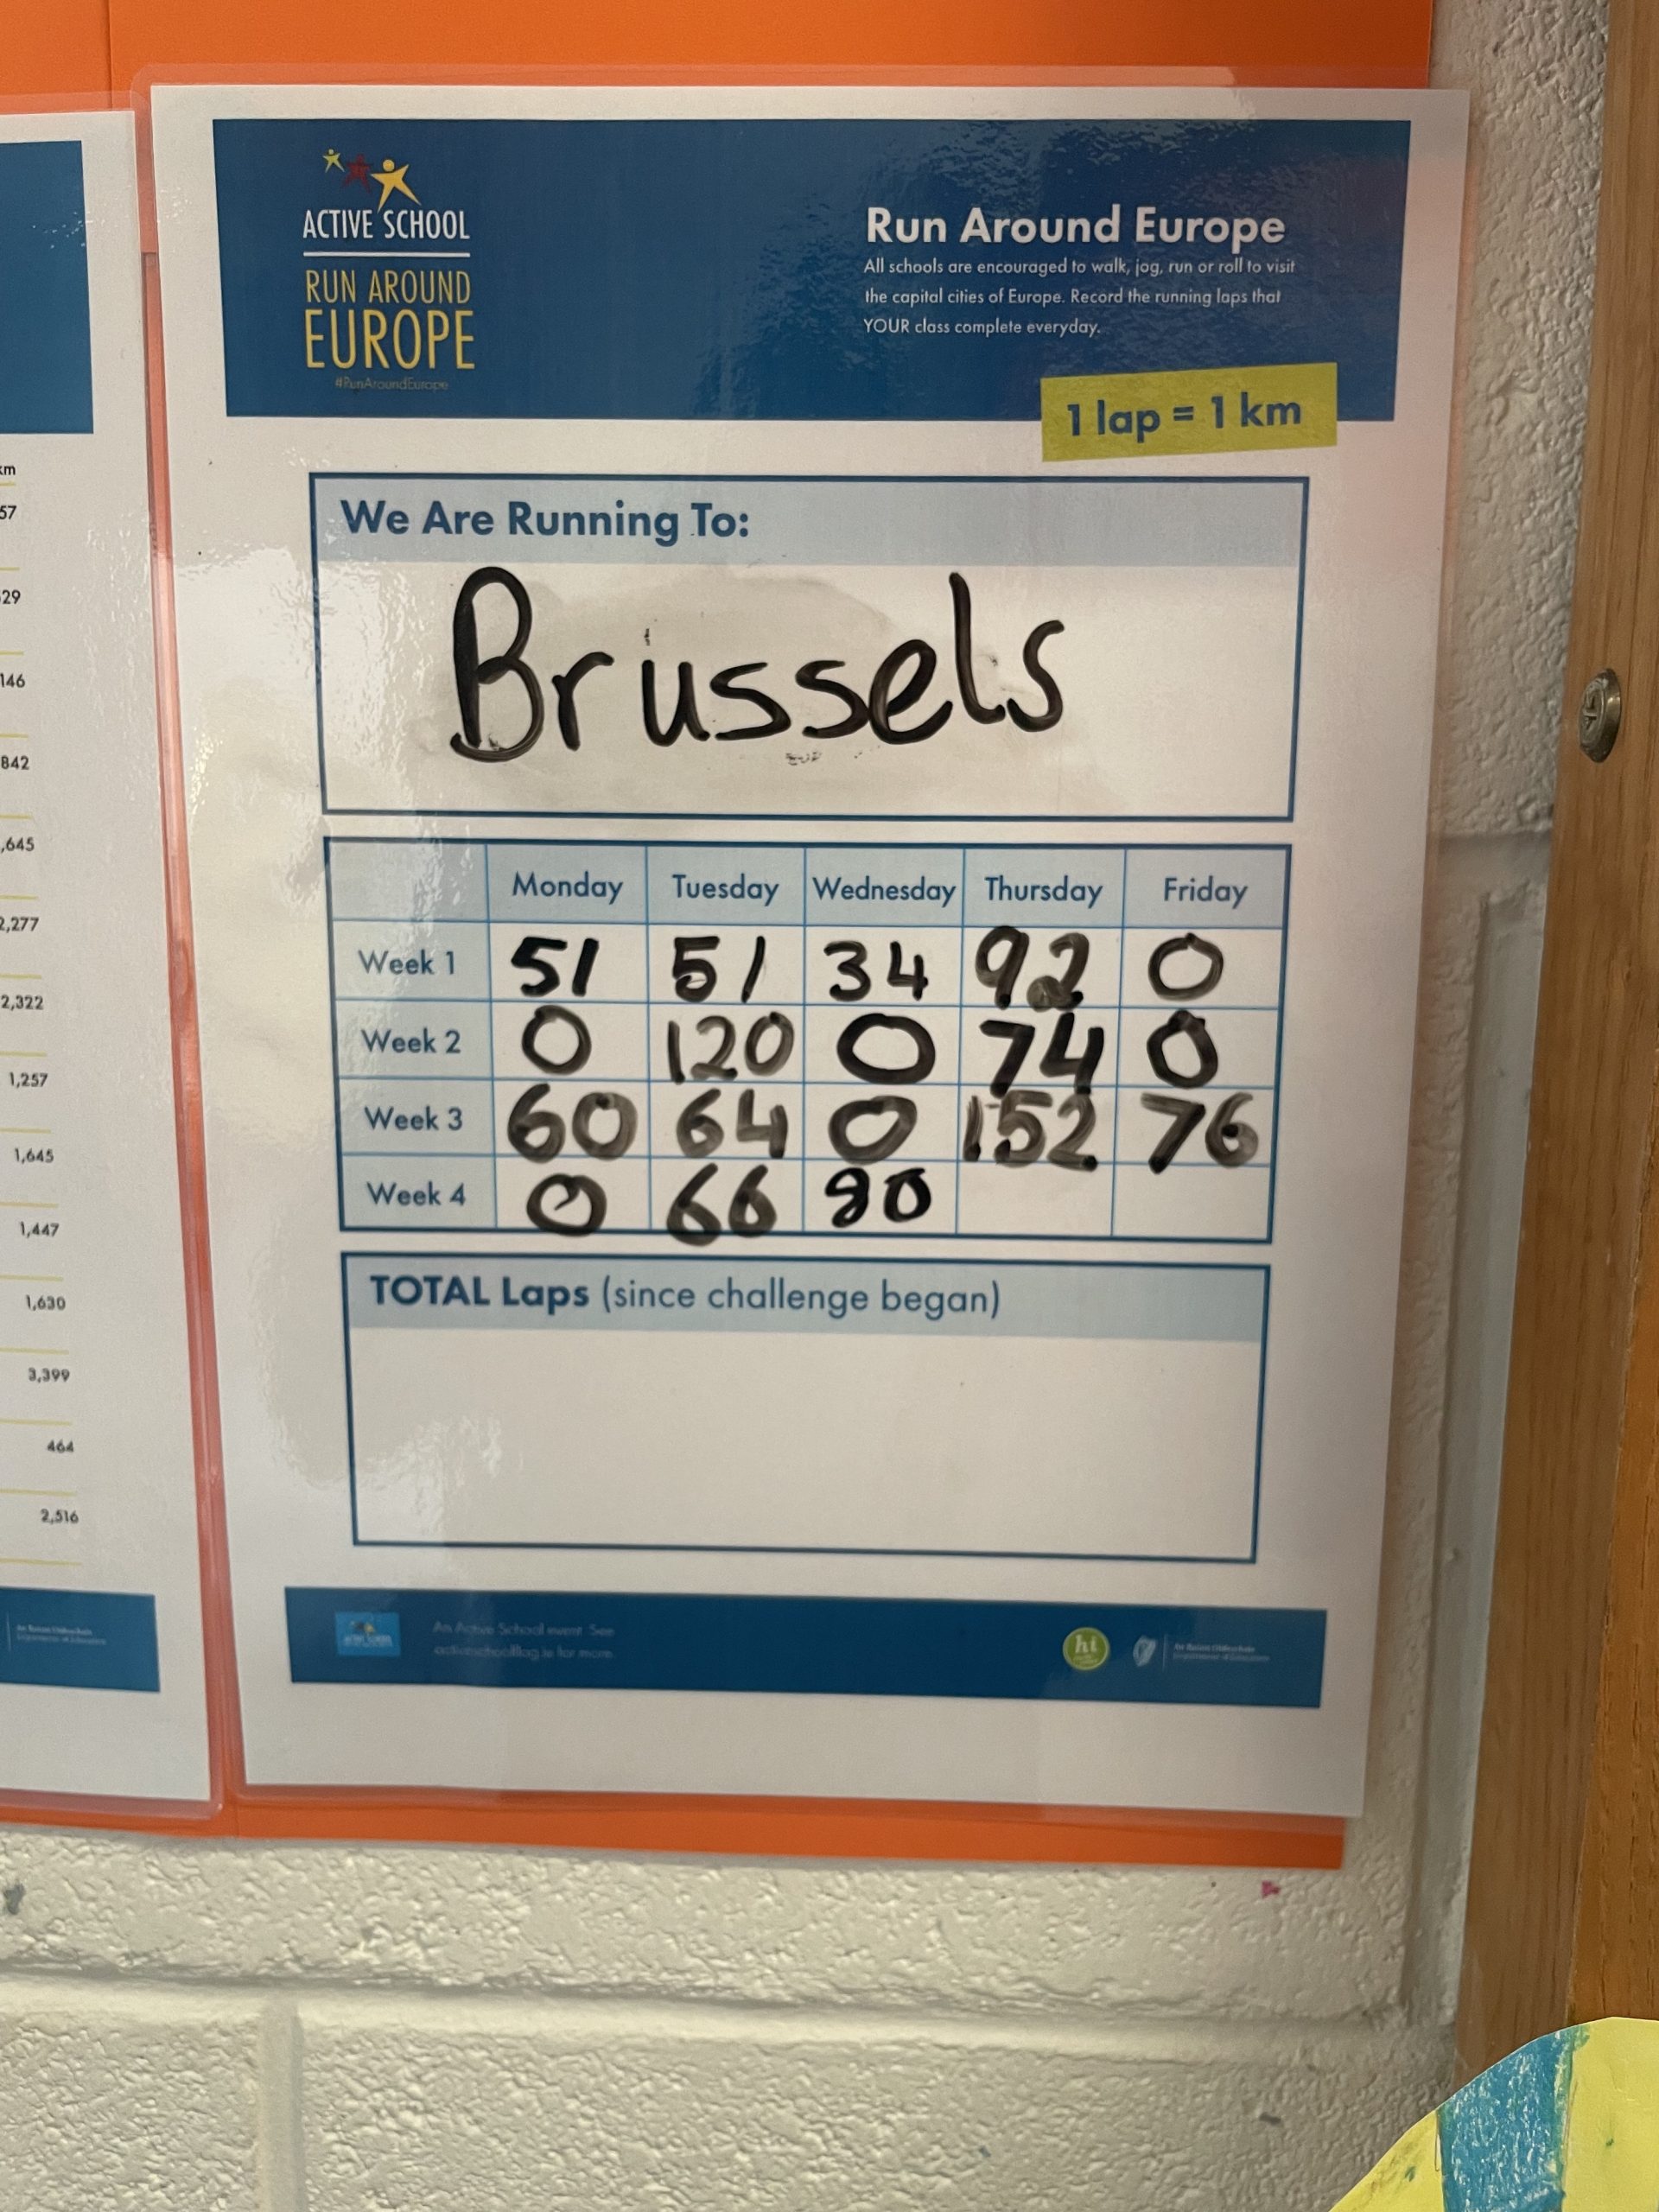 ACTIVE SCHOOL
RUN AROUND
EUROPE
#RunAroundEurope
Run Around Europe
All schools are encouraged to walk, jog, run or roll to visit
the capital cities of Europe. Record the running laps that
YOUR class complete everyday.
1 lap = 1 km
We Are Running To:
Brussels
Monday Tuesday Wednesday Thursday Friday
Week 1 51 51 34 92 0
Week 2 0 120 0 74 0
Week 3 60 64 0 152 76
Week 4 0 66 80
TOTAL Laps (since challenge began)
An Active School event. See
activeschoolflag.ie for more
hi
An Roinn Oideachais
Department of Education
km
57
29
146
842
,645
2,277
2,322
1,257
1,645
1,447
1,630
3,399
464
2,516
An Roinn Oideachais
Department of Education